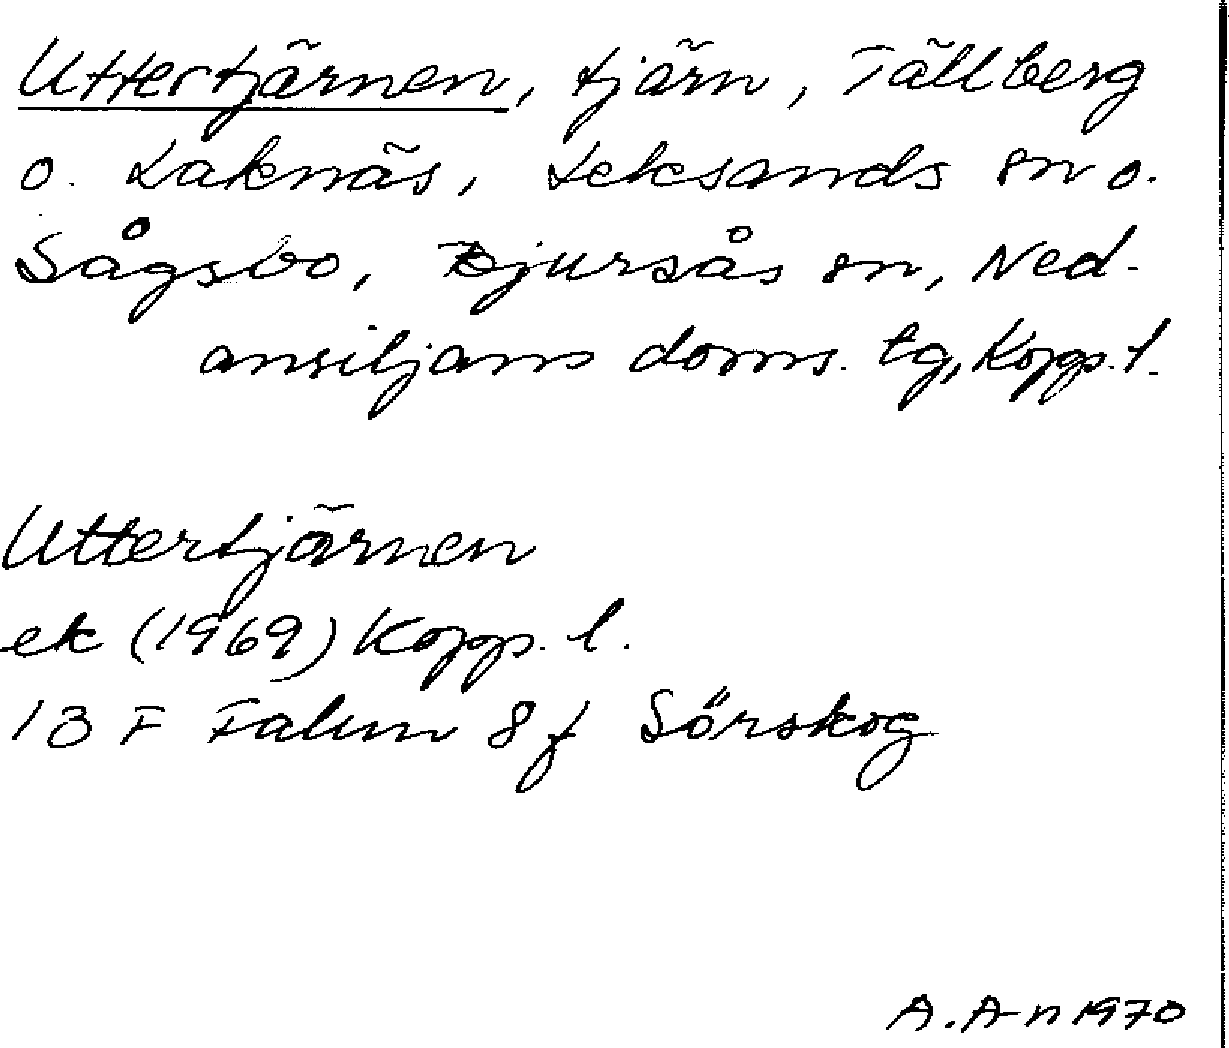 Uttertjärnen, tjärn, Tällberg
o. Laknäs, Leksands sn o.
Sågsbo, Bjursås sn, Ned-
ansiljans doms. tg, Kopp. l.
Uttertjärnen
ek (1969) Kopp. l.
13 F Falun 8 f Sörskog
A. A-n 1970